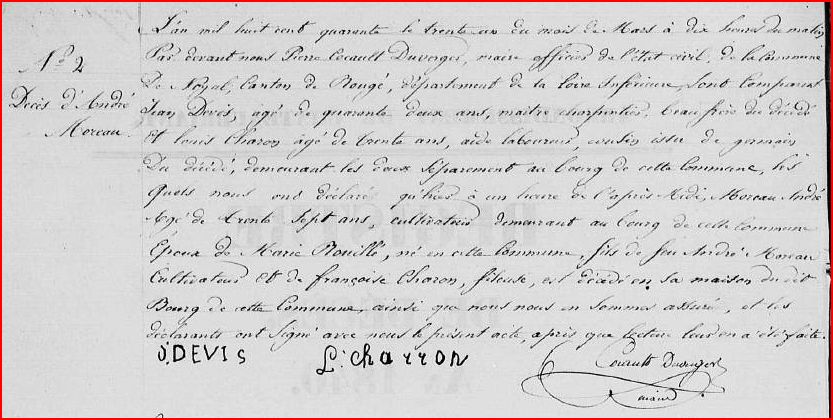 N.º 2
Décès d'André
Moreau.
L'an mil huit cent quarante le trente un du mois de Mars à dix heures du matin
Par devant nous Pierre Couault Duverger, maire officier de l'Etat civil, de la Commune
De Noyal, Canton de Rougé, département de la Loire Inférieure, sont Comparent
Jean Devis, agé de quarante deux ans, maitre charpentier, beaufrère du décédé
et Louis Charon agé de trente ans, aide laboureur, cousin issu de germain
Du décédé, demeurant les deux séparement au bourg de cette Commune, les
quels nous ont déclaré qu'hier à un heure de l'après Midi, Moreau André
Agé de trente Sept ans, cultivateur demeurant au bourg de cette Commune
Epoux de Marie né en cette Commune, fils de feu André Moreau
Cultivateur Et de françoise Charon, fileuse, est décédé en sa maison du dit
Bourg de cette Commune, ainsi que nous nous en sommes assuré, et les
déclarants ont Signé avec nous le présent acte, après que lecture leur en a été faite.
J. DEVIS L. charron
Couault Duverger
maire